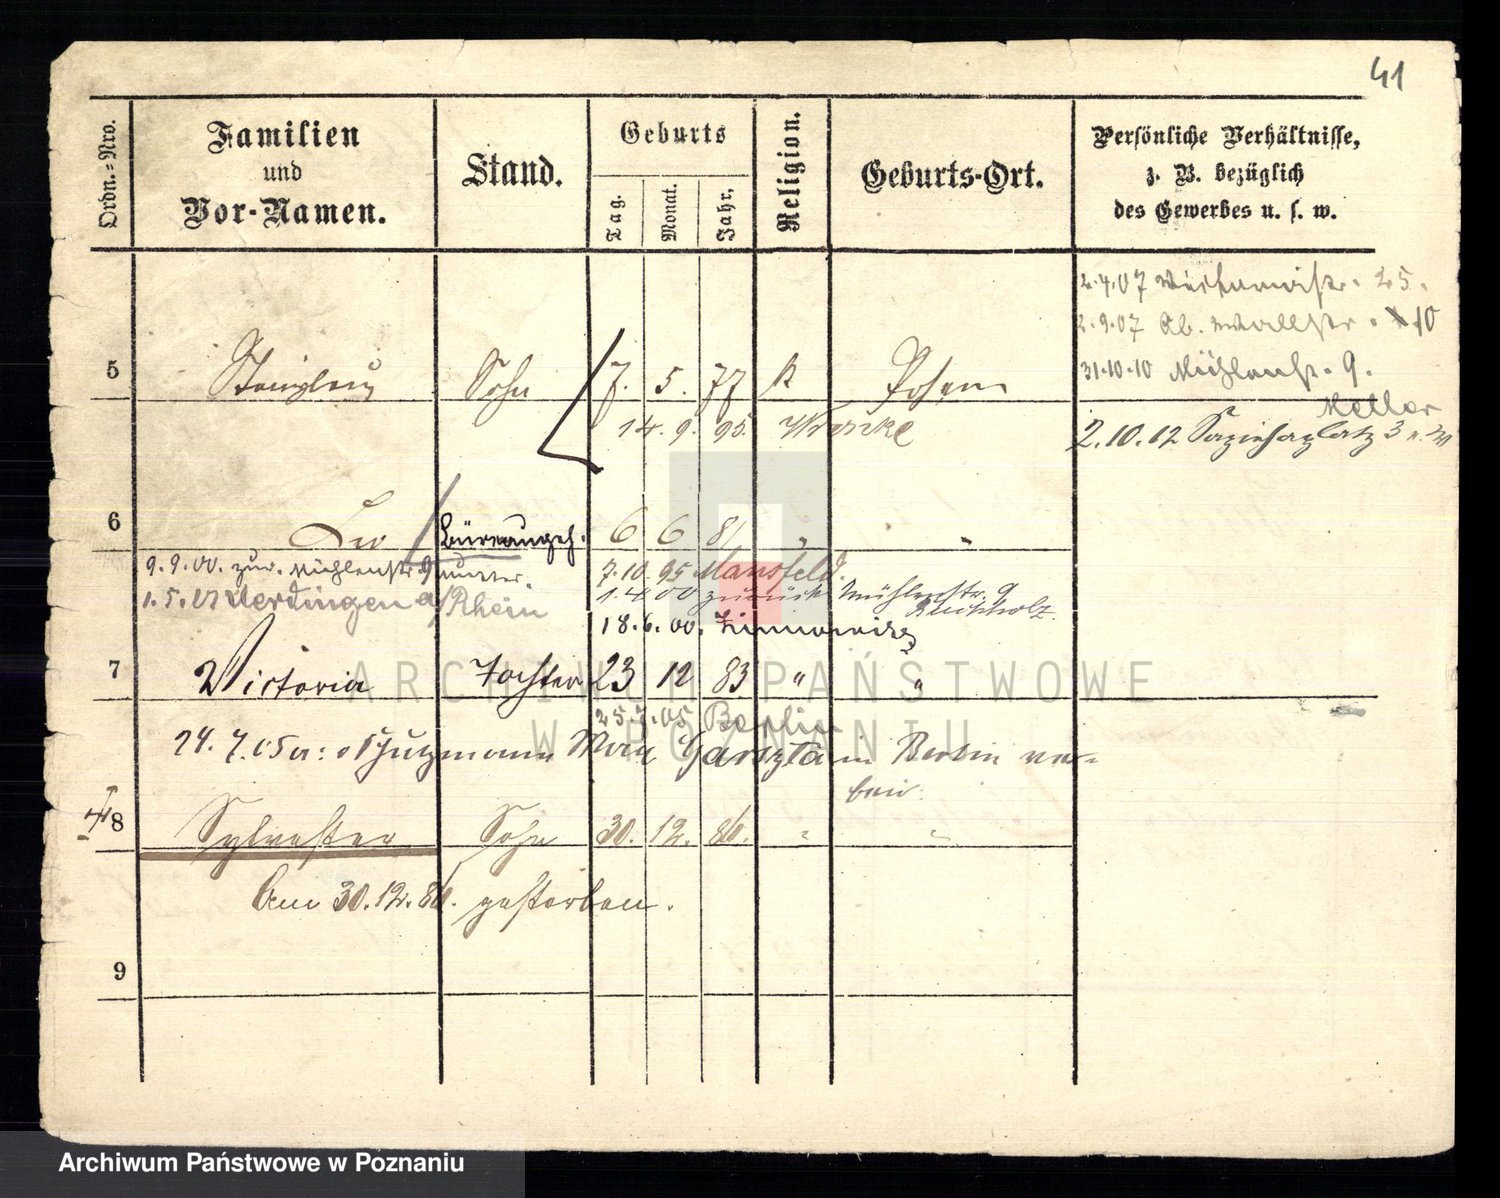 41
Ordn.-Nro.
Familien
und
Vor-Namen.
Stand.
Geburts
Tag.
Monat.
Jahr.
Religion.
Geburts-Ort.
Persönliche Verhältnisse,
z. B. bezüglich
des Gewerbes u. s. w.
2.4.07 25.
2.9.07 Wallstr. 10
31.10.10 Mühlenstr. 9.
5 Sohn 7. 5. 77 k Posen
14. 9. 95.
2.10.12 Sapiehaplatz 3
6 Leo Büreaugeh. 6 6 81 " "
9.9.00. zur. Mühlenstr. 9
7.10.95 Mansfeld.
1.4.00 zurück Mühlenstr. 9
Buchholz
1.5.01 Uerdingen a/Rhein
18.6.00. Zinnowitz
7 Victoria Tochter 23 12 83 " "
25.7.05 Berlin
24.7.05 a: Schutzmann Max Garszta in Berlin
8 Sylvester Sohn 30. 12. 86. " "
Am 30.12.86. gestorben.
9
ARCHIWUM PAŃSTWOWE
W POZNANIU
Archiwum Państwowe w Poznaniu